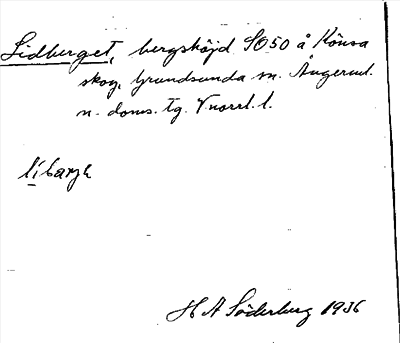 Lidberget, bergshöjd SO50 å Könsa
skog, Grundsunda sn. Ångerml.
n. doms. tg. V norrl. l.
líbarjə
H A Söderberg 1936